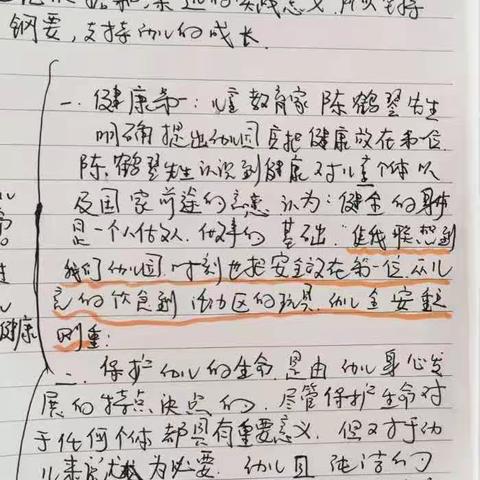 钢要,支持幼儿的成长.
一.健康第一:儿童教育家陈鹤琴先生
明确提出幼儿园要把健康放在第一位
陈鹤琴先生认识到健康对儿童个体以
及国家前途的意义 认为:健全的身体
是一个人做人.做事的基础.使我联想到
我们幼儿园.时刻也把安全放在第一位.从儿
童的饮食到活动区的玩具.幼儿安全
则重:
二.保护幼儿的生命.是由幼儿身心发
展的特点决定的.尽管保护生命对
于任何个体都具有重要意义.但对于幼
儿来说尤为必要.幼儿且
健康